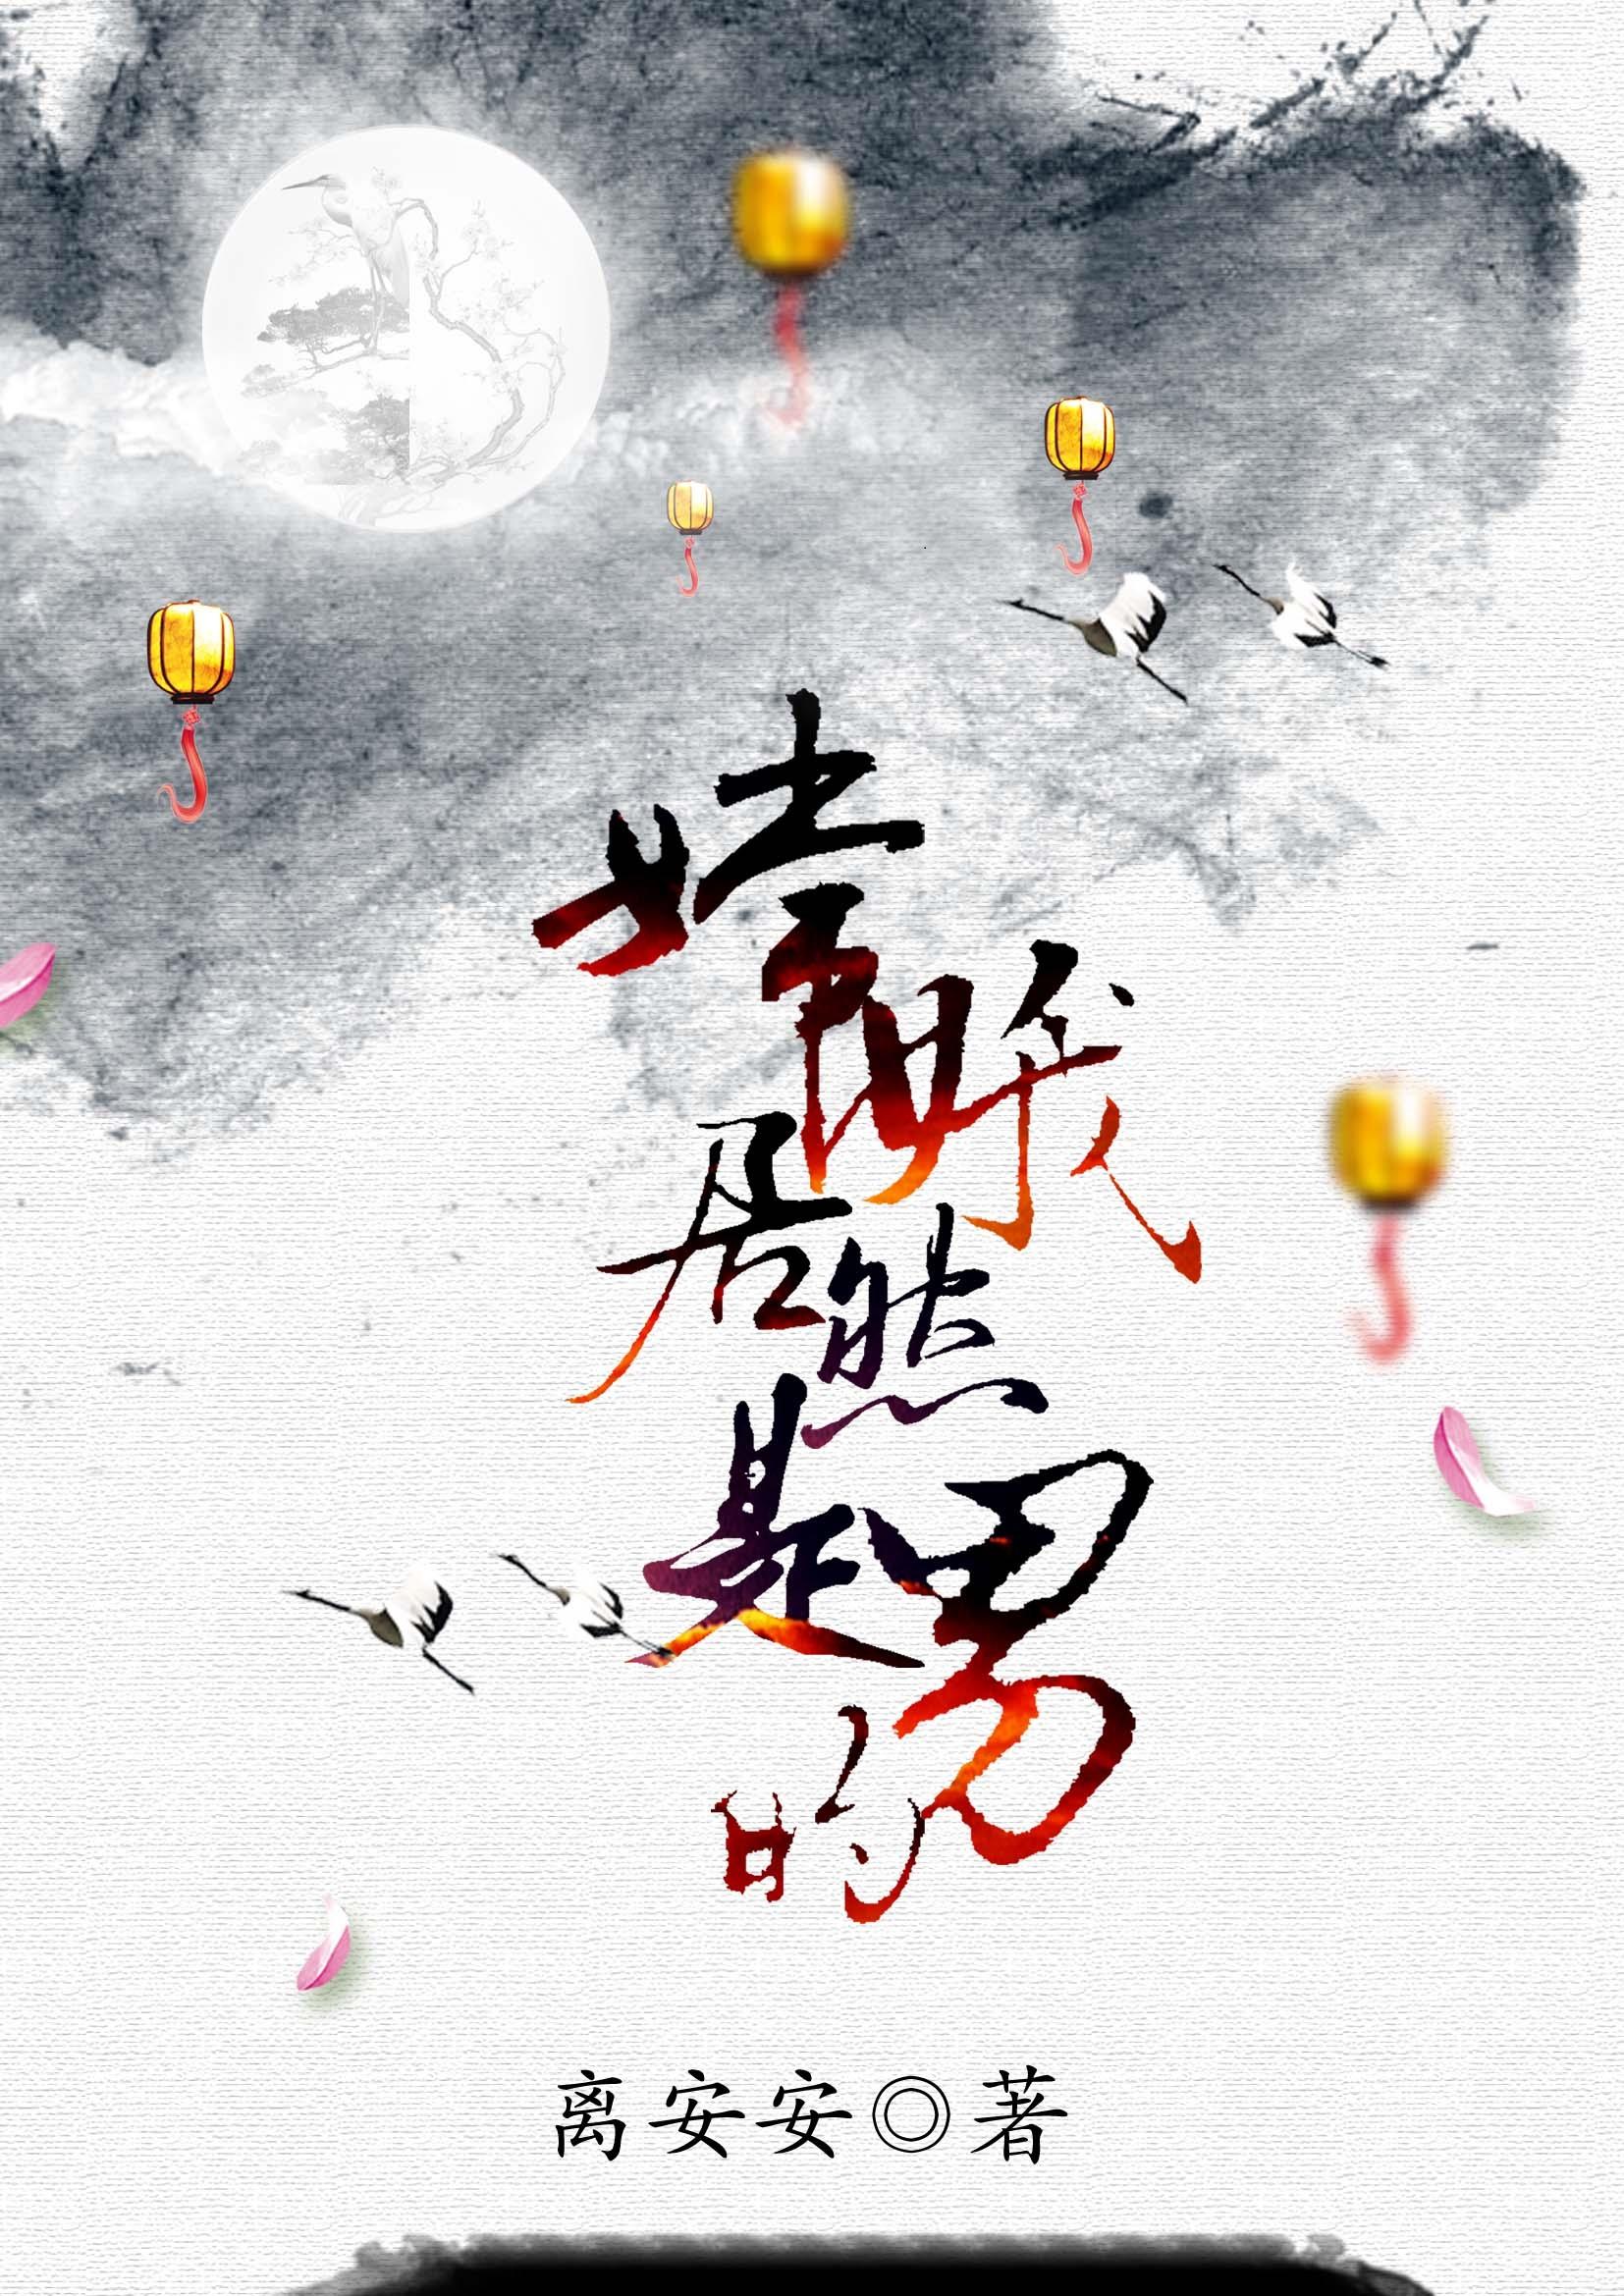 嫦娥居然是男的
离安安◎著